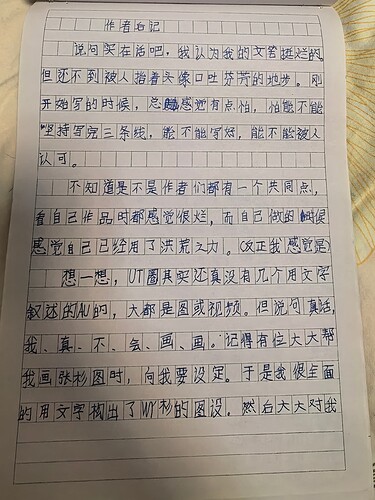 作者后记
说句实在话吧，我认为我的文笔挺烂的，
但还不到被人指着头像口吐芬芳的地步。刚
开始写的时候，总感觉有点怕，怕能不能
坚持写完三条线，能不能写好，能不能被人
认可。
不知道是不是作者们都有一个共同点，
看自己作品时都感觉很烂，而自己做的时候
感觉自己已经用了洪荒之力。（反正我感觉是）
想一想，UT圈其实还真没有几个用文字
叙述的AU的，大都是图或视频。但说句真话，
我、真、不、会、画、画。记得有位大大帮
我画张杉图时，向我要设定。于是我很全面
的用文字构出了MY杉的图设。然后大大对我